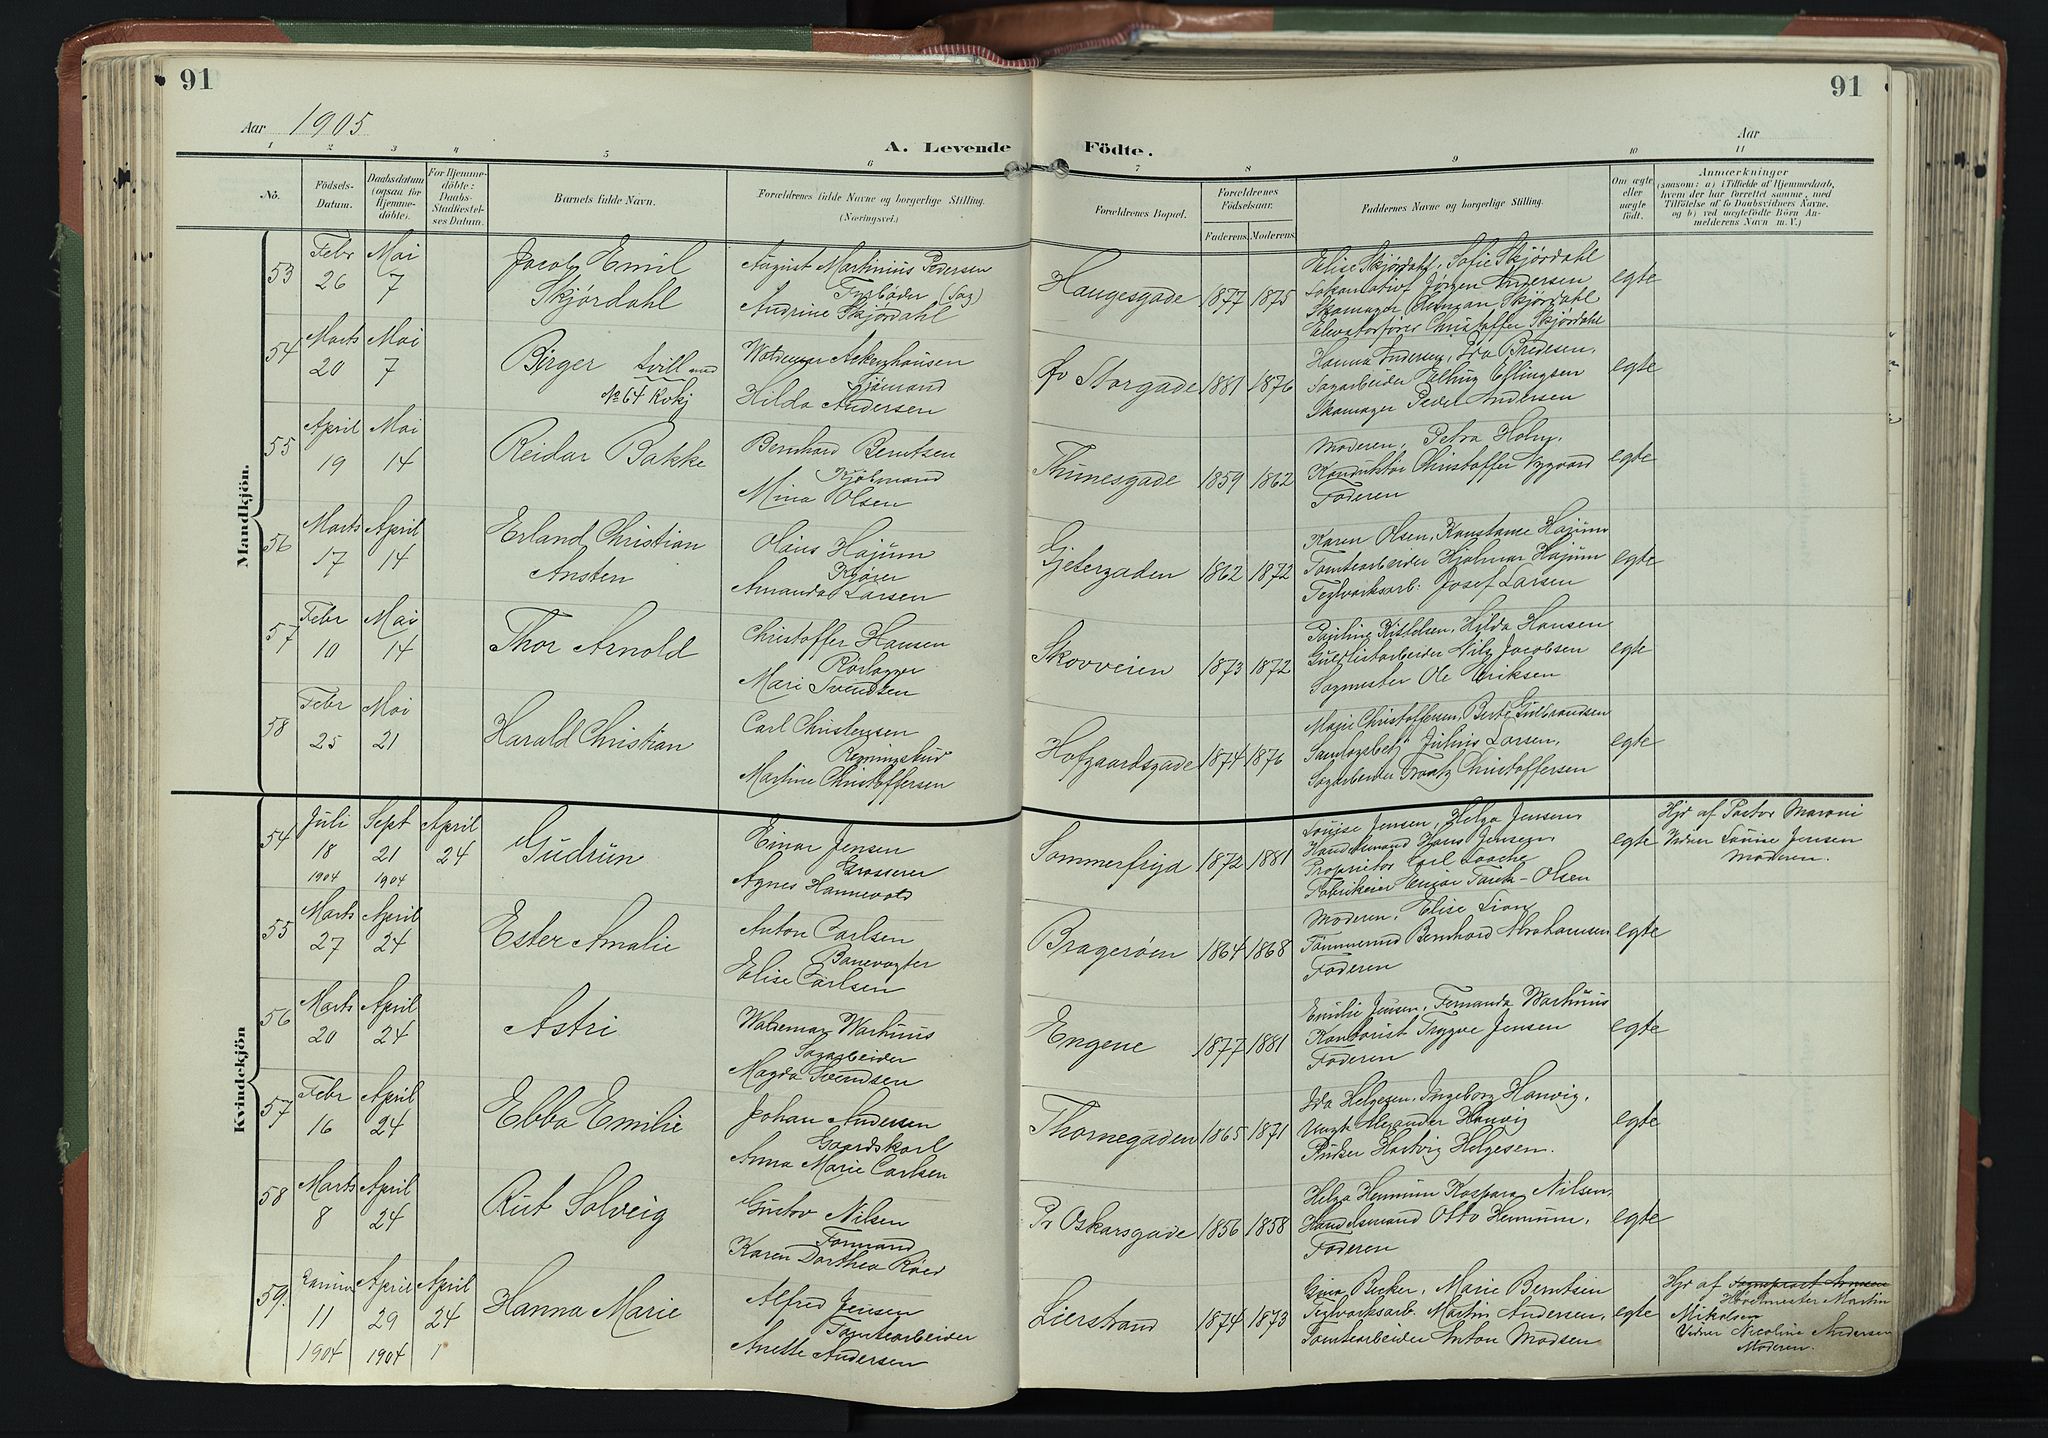 91
91
Aar 1905
A. Levende Födte.
Aar
1 2 3 4 5 6 7 8 9 10 11
No.
Födsels-Datum.
Daabsdatum (ogsaa for Hjemme-döbte).
For Hjemme-döbte: Daabs-Stadfæstel-ses Datum.
Barnets fulde Navn.
Forældrenes fulde Navne og borgerlige Stilling. (Næringsvei.)
Forældrenes Bopæl.
Forældrenes Födselsaar.
Faderens. Moderens.
Faddernes Navne og borgerlige Stilling.
Om ægte eller uægte födt.
Anmærkninger
(saasom: a) i Tilfælde af Hjemmedaab, hvem der har forrettet samme, med Tilföielse af to Daabsvidners Navne, og b) ved uægtefödte Börn An-melderens Navn m. V.)
Mandkjön.
53 Febr 26 Mai 7 Jacob Emil Skjørdahl
August Martinius Pedersen
Fyrbøder (Sag)
Andrine Skjørdahl
Haugesgade 1877 1875
Elise Skjørdahl, Sofie Skjørdahl
Jørgen Andersen
Skomager Skjørdahl
Christoffer Skjørdahl
egte
54 Marts 20 Mai 7 Birger tvill med No 64 Kvkj
Waldemar
Sjømand
Hilda Andersen
Øv Storgade 1881 1876
Hanna Andersen, Ida Bredesen,
Sagarbeider
Skomager Peder Andersen
egte
55 April 19 Mai 14 Reidar Bakke
Bernhard Berntsen
Kjøbmand
Mina Olsen
Thunesgade 1859 1862
Moderen, Petra Holm,
Konduktør Christoffer Nygaard
Faderen
egte
56 Marts 17 April 14 Erland Christian Ansten
Olaus Hajum
Kjører
Amanda Larsen
Gjetergaden 1862 1872
Karen Olsen, Konstanse Hajum
Tomtearbeider Hjalmar Hajum
Teglværksarb: Josef Larsen
egte
57 Febr 10 Mai 14 Thor Arnold
Christoffer Hansen
Rørlægger
Mari Svendsen
Skovveien 1873 1872
Pauline Kittelsen, Hilda Hansen
Nils Jacobsen
Sagmester Ole Eriksen
egte
58 Febr 25 Mai 21 Harald Christian
Carl Christensen
Regningsbud
Martine Christoffersen
Hofgaardsgade 1874 1876
Marie Christoffersen, Berte Gulbrandsen
Julius Larsen,
Sagarbeider Frantz Christoffersen
egte
Kvindekjön
54 Juli 18 1904 Sept 21 1904 April 24 Gudrun
Einar Jensen
Grosserer
Agnes Hannevold
Sommerfryd 1872 1881
Louise Jensen, Helga Jensen,
Handelsmand Hans Jensen,
Proprietær Carl Laache
Fabrikeier Einar Tandb-Olsen
egte
Hjd af Pastor Maroni
Vidner Louise Jensen
Moderen.
55 Marts 27 April 24 Ester Amalie
Anton Carlsen
Banevogter
Elise Carlsen
Bragerøen 1864 1868
Moderen, Elise Lian,
Tømmermd Bernhard Abrahamsen
Faderen
egte
56 Marts 20 April 24 Astri
Waldemar Warhuus
Sagarbeider
Magda Svendsen
Engene 1877 1881
Emilie Jensen, Fernanda Warhuus
Kontorist Trygve Jensen
Faderen
egte
57 Febr 16 April 24 Ebba Emilie
Johan Andersen
Gaardskarl
Anna Marie Carlsen
Thornegaden 1865 1871
Ida Helgesen, Ingeborg Hanvig,
Ungk Alexander Hanvig
Pudser Hartvig Helgesen.
egte
58 Marts 8 April 24 Rut Solveig
Gustav Nilsen
Formand
Karen Dorthea Röed
Pr Oskarsgade 1856 1858
Helga Hennum Kaspara Nilsen,
Handelsmand Otto Hennum,
Faderen
egte
59. Januar 11 1904 April 29 1904 April 24 Hanna Marie
Alfred Jensen
Tomtearbeider
Anette Andersen
Lierstrand 1874 1873
Gina Becker, Marie Berntsen
Teglværksarb. Martin Andersen,
Tomtearbeider Anton Madsen
egte
Hjd af
Martin
Mikalsen
Vidner Nicoline Andersen
Moderen.